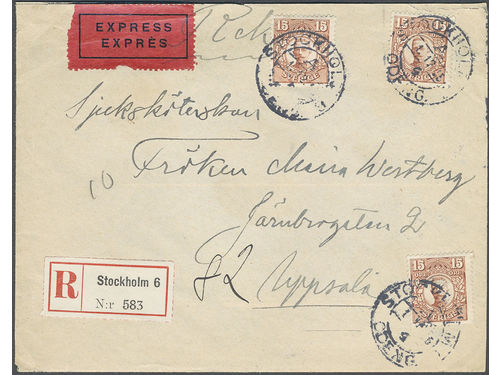 EXPRESS
EXPRÈS
Rek
15 15
STOCKHOLM
15 15
STOCKHOLM
Sjuksköterskan
Fröken Maria Westberg
10
Järnbrogatan 2
82 Uppsala
R Stockholm 6
N:r 583
15 15
STOCKHOLM
SVERIGE